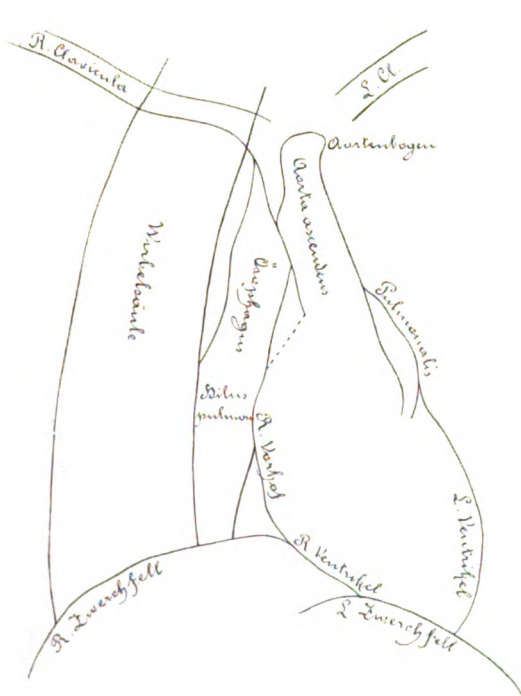 R. Clavicula
L. Cl.
Aortenbogen
Aorta ascendens
Wirbelsäule
Ösophagus
Pulmonalis
Hilus
pulmon
R. Vorhof
L. Ventrikel
R Ventrikel
R. Zwerchfell
L Zwerchfell